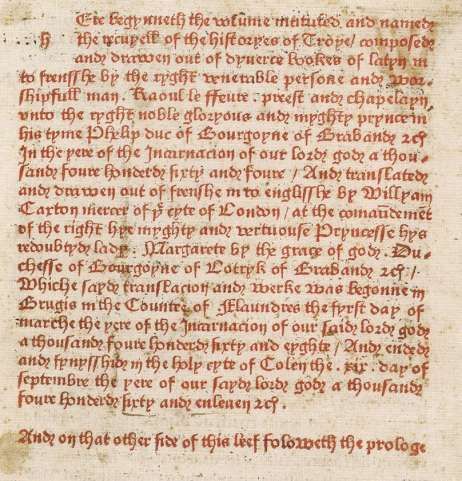 h Ere begynneth the volume intituled and named
the recuyell of the historyes of Troye/ composed
and drawen out of dyuerce bookes of latyn in
to frensshe by the ryght venerable persone and wor-
shipfull man . Raoul le ffeure . preest and chapelayn
vnto the ryght noble gloryous and myghty prynce in
his tyme Phelip duc of Bourgoyne of Braband &c
In the yere of the Incarnacion of our lord god a thou-
sand foure honderd sixty and foure / And translated
and drawen out of frenshe in to englisshe by Willyam
Caxton mercer of yͤ cyte of London / at the comaūdemēt
of the right hye myghty and vertuouse Pryncesse hys
redoubtyd lady . Margarete by the grace of god . Du-
chesse of Bourgoyne of Lotryk of Braband &c /
Whiche sayd translacion and werke was begonne in
Brugis in the Countre of Flaundres the fyrst day of
marche the yere of the Incarnacion of our said lord god
a thousand foure honderd sixty and eyghte / And ended
and fynysshid in the holy cyte of Colen the . xix . day of
septembre the yere of our sayd lord god a thousand
foure honderd sixty and enleuen &c .
And on that other side of this leef foloweth the prologe